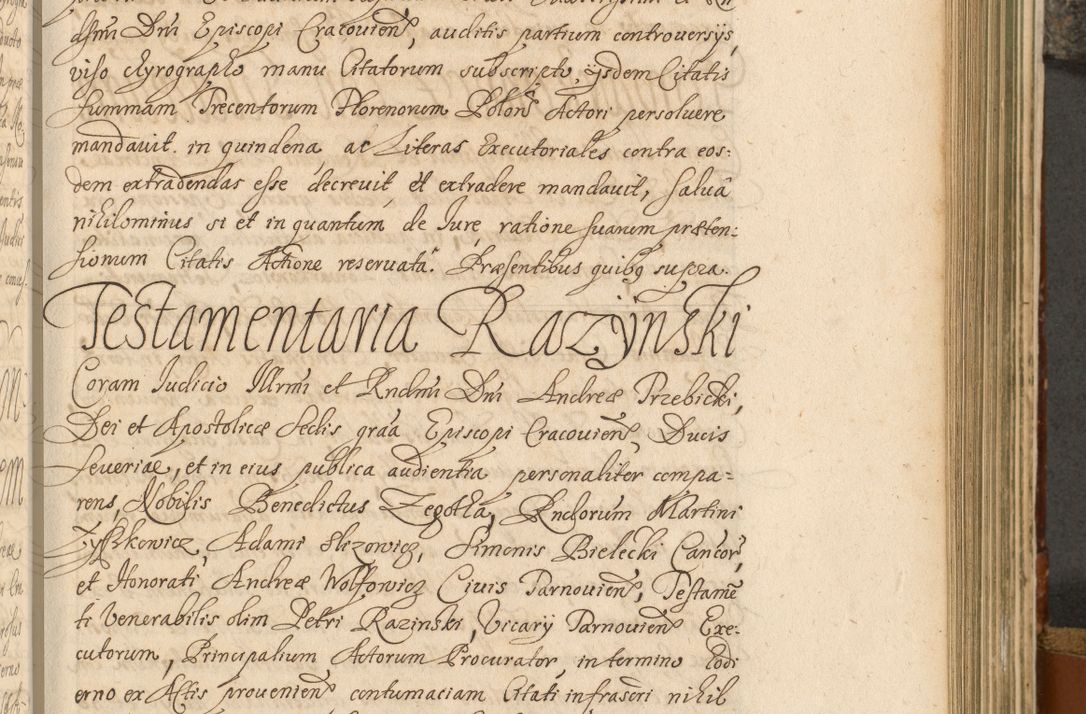 dſmi Dni Episcopi Cracovien, auditis partium controversijs,
viso chyrographo manu Citatorum subscripto, ijsdem Citatis
summam Trecentorum Florenorum Polon Actori persoluere
mandauit in quindena ac Literas Executoriales contra eos:
dem extradendas esse decreuit et extradere mandauit, salua
nihilominus si et in quantum de Iure ratione suarum præten:
sionum Citatis Actione reseruata. Præsentibus quibq supra.
Testamentaria Razÿnski
Coram Iudicio Illrmi et Rndmi Dni Andreæ Trzebicki,
Dei et Apostolicæ Sedis graa Episcopi Cracovien, Ducis
Seueriae, et in eius publica audientia personaliter compa-
rens, Nobilis Benedictus Zegotta, Rndorum Martini
Zyszkowicz, Adami Slizowicz, Simonis Bielecki Cancor,
et Honorati Andreæ Wolfowicz Ciuis Tarnouien, Testamē
ti Venerabilis olim Petri Razinski, Vicarij Tarnouien Exe:
cutorum, Principalium Actorum Procurator, in termino hodi
erno ex Actis prouenien contumaciam Citati infrascri nihil